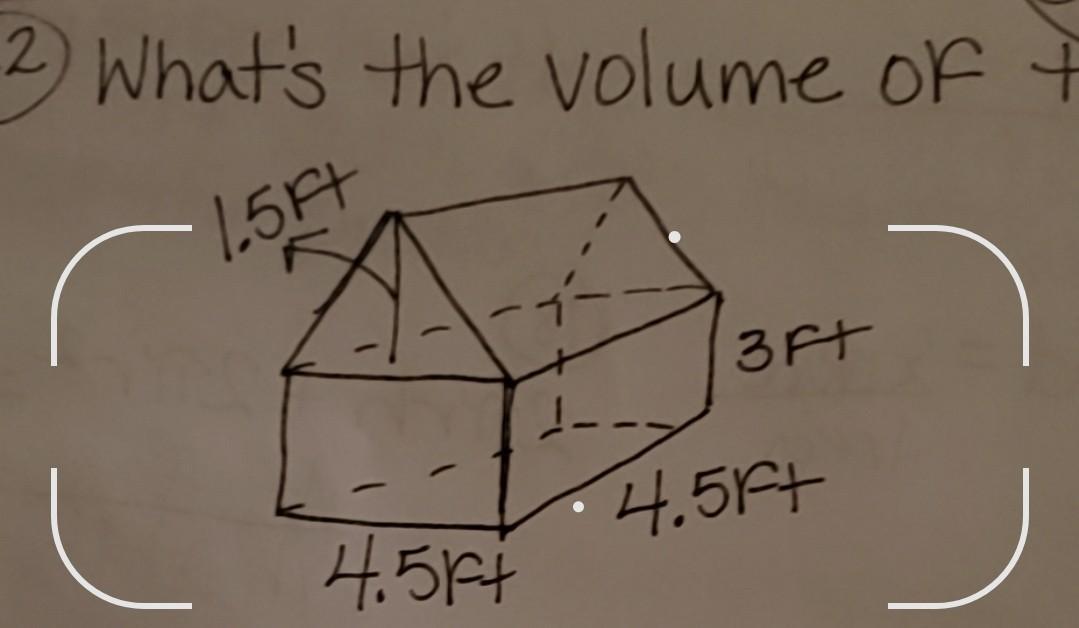 2) What's the volume of
1.5ft
3ft
4.5ft
4.5ft